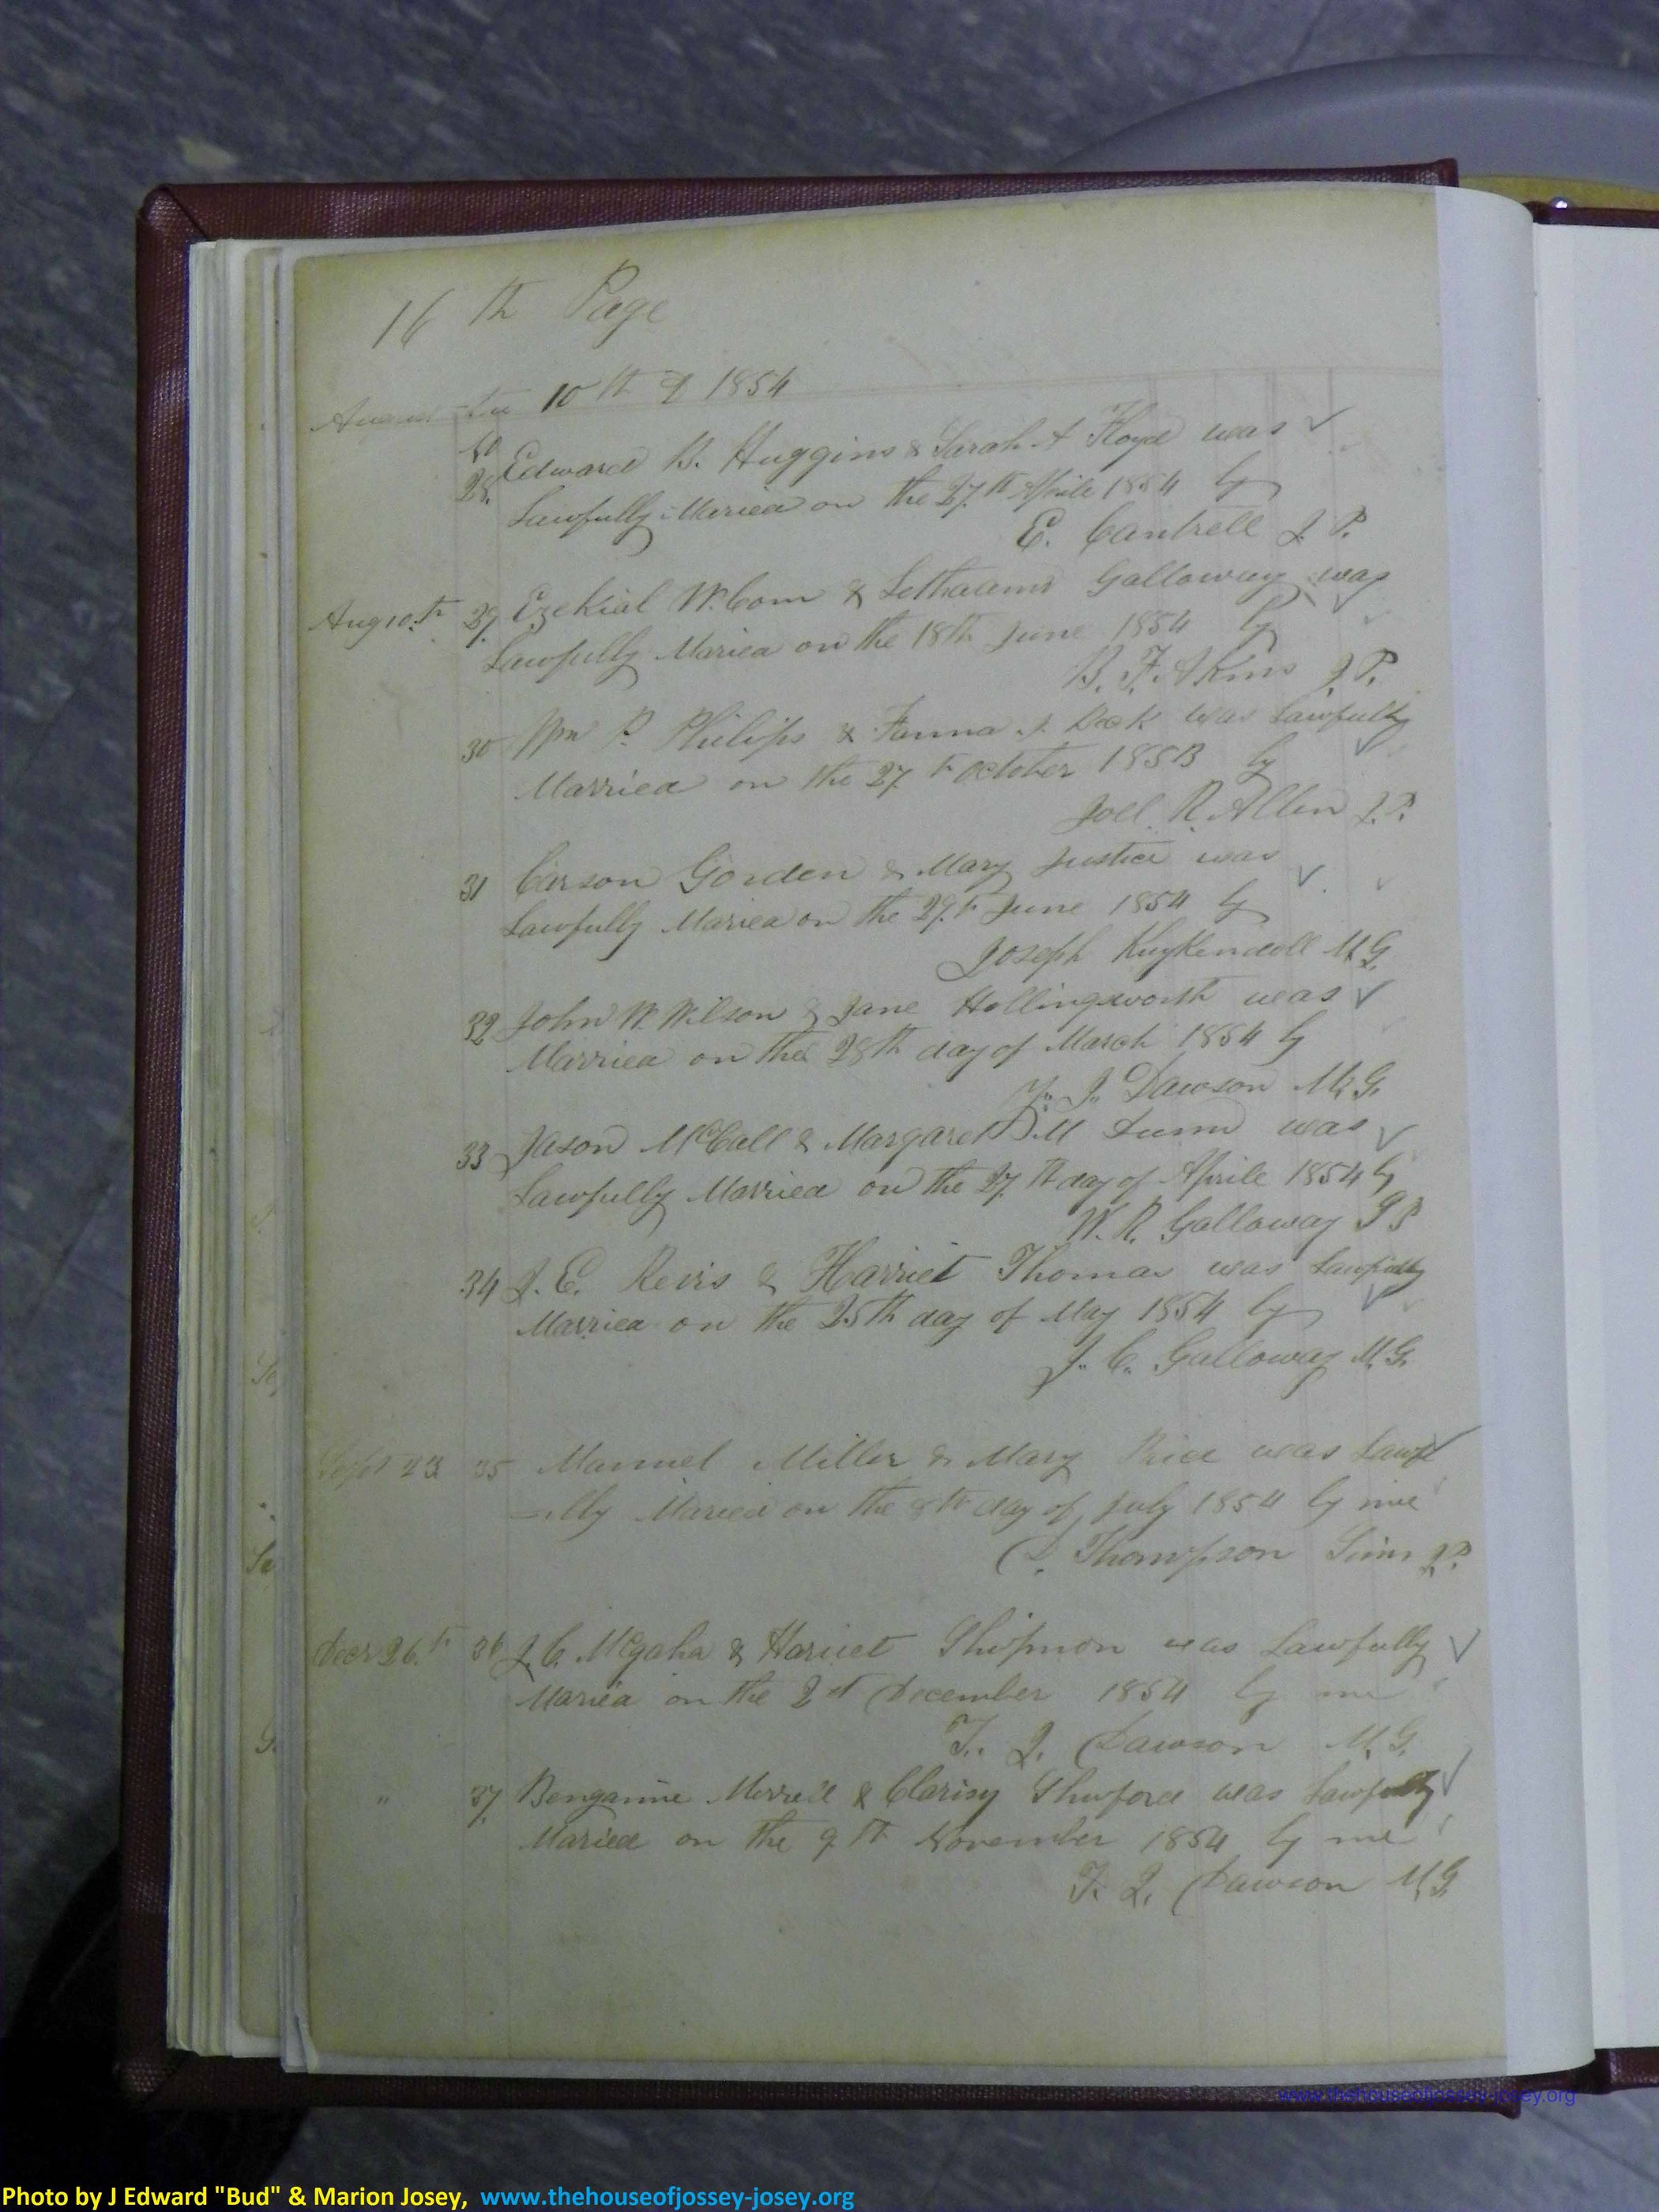 16 th Page
August the 10th 1854
No
28. Edward B. Huggins & Sarah A Floyd was
Lawfully Maried on the 27th Aprile 1854 by
E. Cantrell J. P.
Aug 10.th 29. Ezekial W. Corn & Galloway was
Lawfully Maried on the 18th June 1854 by
B. F. Akins J. P.
30 Wm P. Philips & J. was Lawfully
Married on the 27 th October 1853 by
Joel R. Allen J. P.
31 Carson Gorden & Mary Justice was
Lawfully Maried on the 29.th June 1854 by
Joseph Kuykendoll M G.
32 John W. Wilson & Jane Hollingsworth was
Married on the 28th day of March 1854 by
T. J. Dawson M. G.
33 Jason McCall & Margaret M was
Lawfully Married on the 27th day of Aprile 1854 by
W. R. Galloway J P
34 J. E. Revis & Harriet Thomas was Lawfully
Married on the 25th day of May 1854 by
J. C. Galloway M. G.
Sept 23 35 Manuel Miller & Mary was Lawf
=ully Maried on the 8th day of July 1854 by me
Thompson J. P.
Decr 26.th 36 J. C. McGaha & Hariet Shipmon was Lawfully
Maried on the 2nd December 1854 by me
T. J. Dawson M. G.
" 37. Bengamine Merrell & Clarisy was Lawfully
Maried on the 9th November 1854 by me
T. J. Dawson M. G.
www.thehouseofjossey-josey.org
Photo by J Edward "Bud" & Marion Josey, www.thehouseofjossey-josey.org